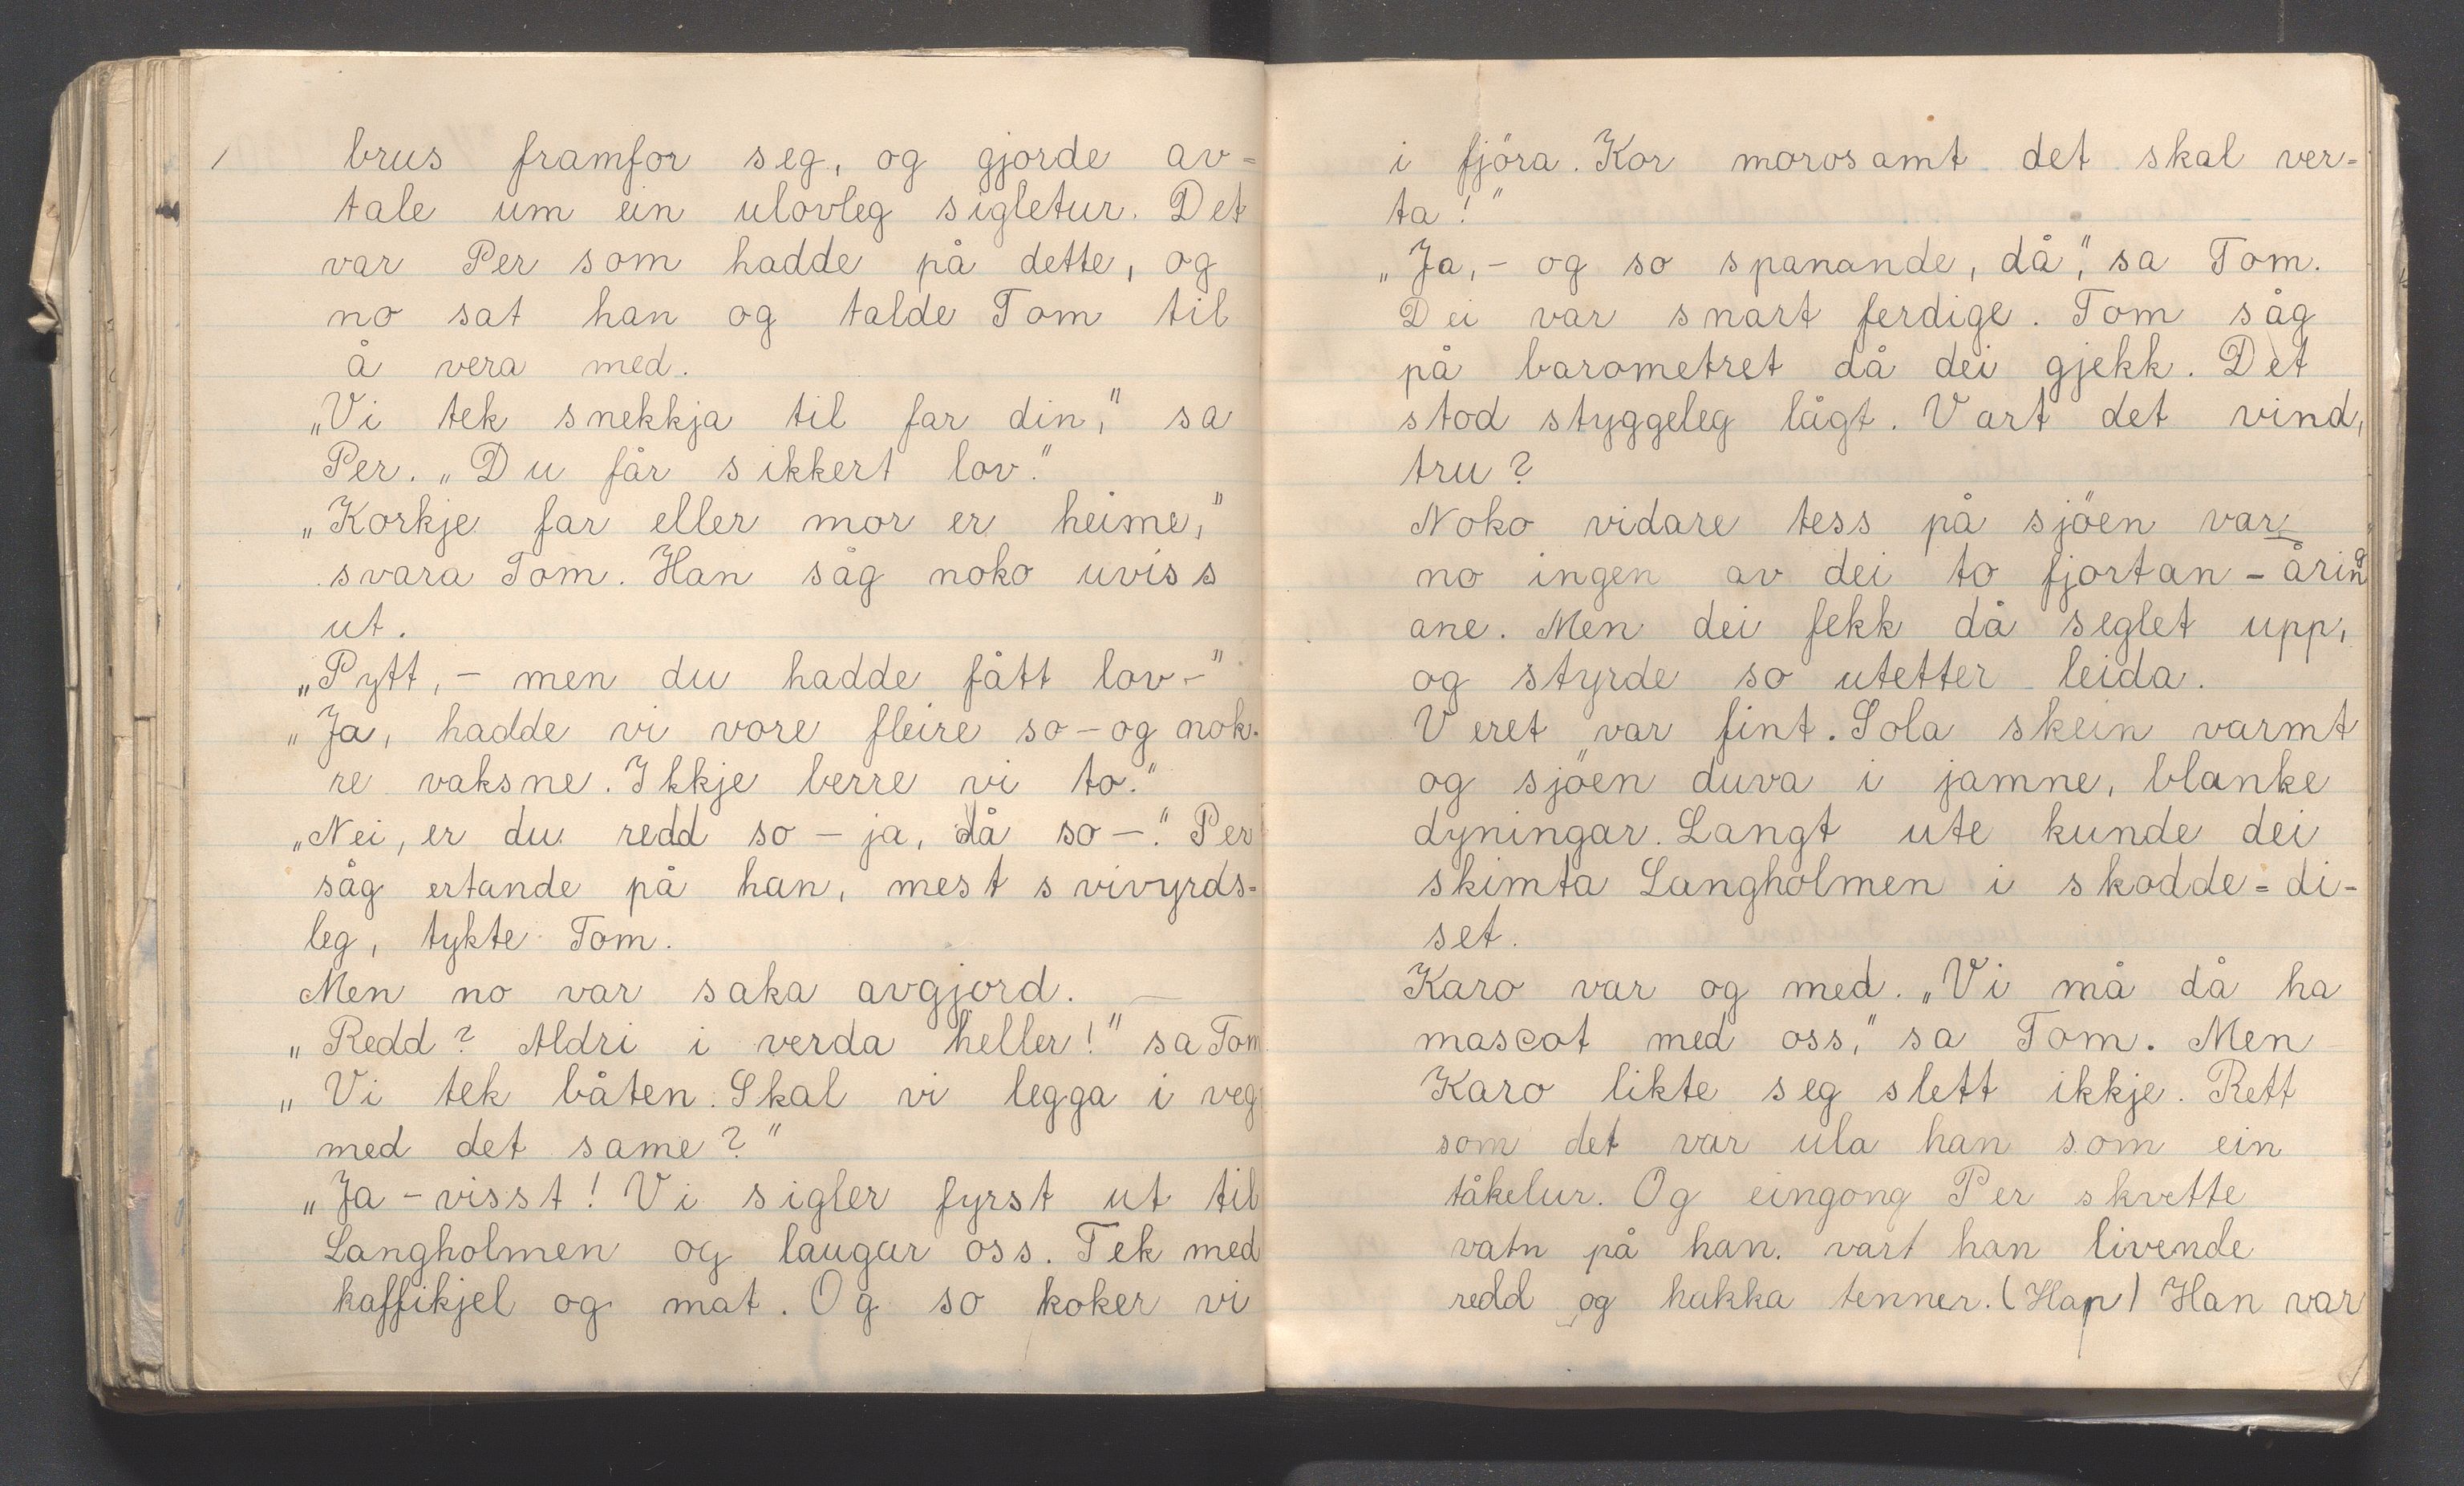 brus framfor seg, og gjorde av=
tale um ein ulovleg sigletur. Det
var Per som hadde på dette, og
no sat han og talde Tom til
å vera med.
„Vi tek snekkja til far din," sa
Per. „Du får sikkert lov."
„Korkje far eller mor er heime,"
svara Tom. Han såg noko uviss
ut.
„Pytt, - men du hadde fått lov -"
„Ja, hadde vi vore fleire so - og nok-
re vaksne. Ikkje berre vi to."
„Nei, er du redd so - ja, då so -." Per
såg ertande på han, mest svivyrds=
leg, tykte Tom.
Men no var saka avgjord. —
„Redd? Aldri i verda heller!" sa Tom
„Vi tek båten. Skal vi legga i veg
med det same?"
„Ja - visst! Vi sigler fyrst ut til
Langholmen og laugar oss. Tek med
kaffikjel og mat. Og so koker vi
i fjöra. Kor morosamt det skal ver=
ta!"
„Ja, - og so spanande, då", sa Tom.
Dei var snart ferdige. Tom såg
på barometret då dei gjekk. Det
stod styggeleg lågt. Vart det vind,
tru?
Noko vidare tess på sjöen var
no ingen av dei to fjortan - åring
ane. Men dei fekk då seglet upp,
og styrde so utetter leida.
Veret var fint. Sola skein varmt
og sjöen duva i jamne, blanke
dyningar. Langt ute kunde dei
skimta Langholmen i skodde = di-
set.
Karo var og med. „Vi må då ha
mascot med oss," sa Tom. Men
Karo likte seg slett ikkje. Rett
som det var ula han som ein
tåkelur. Og eingong Per skvette
vatn på han, vart han livende
redd og hakka tenner. (Han) Han var